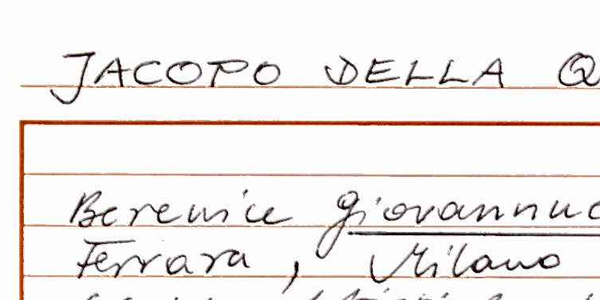 JACOPO DELLA Q
Berenice Giovannuc
Ferrara, Milano